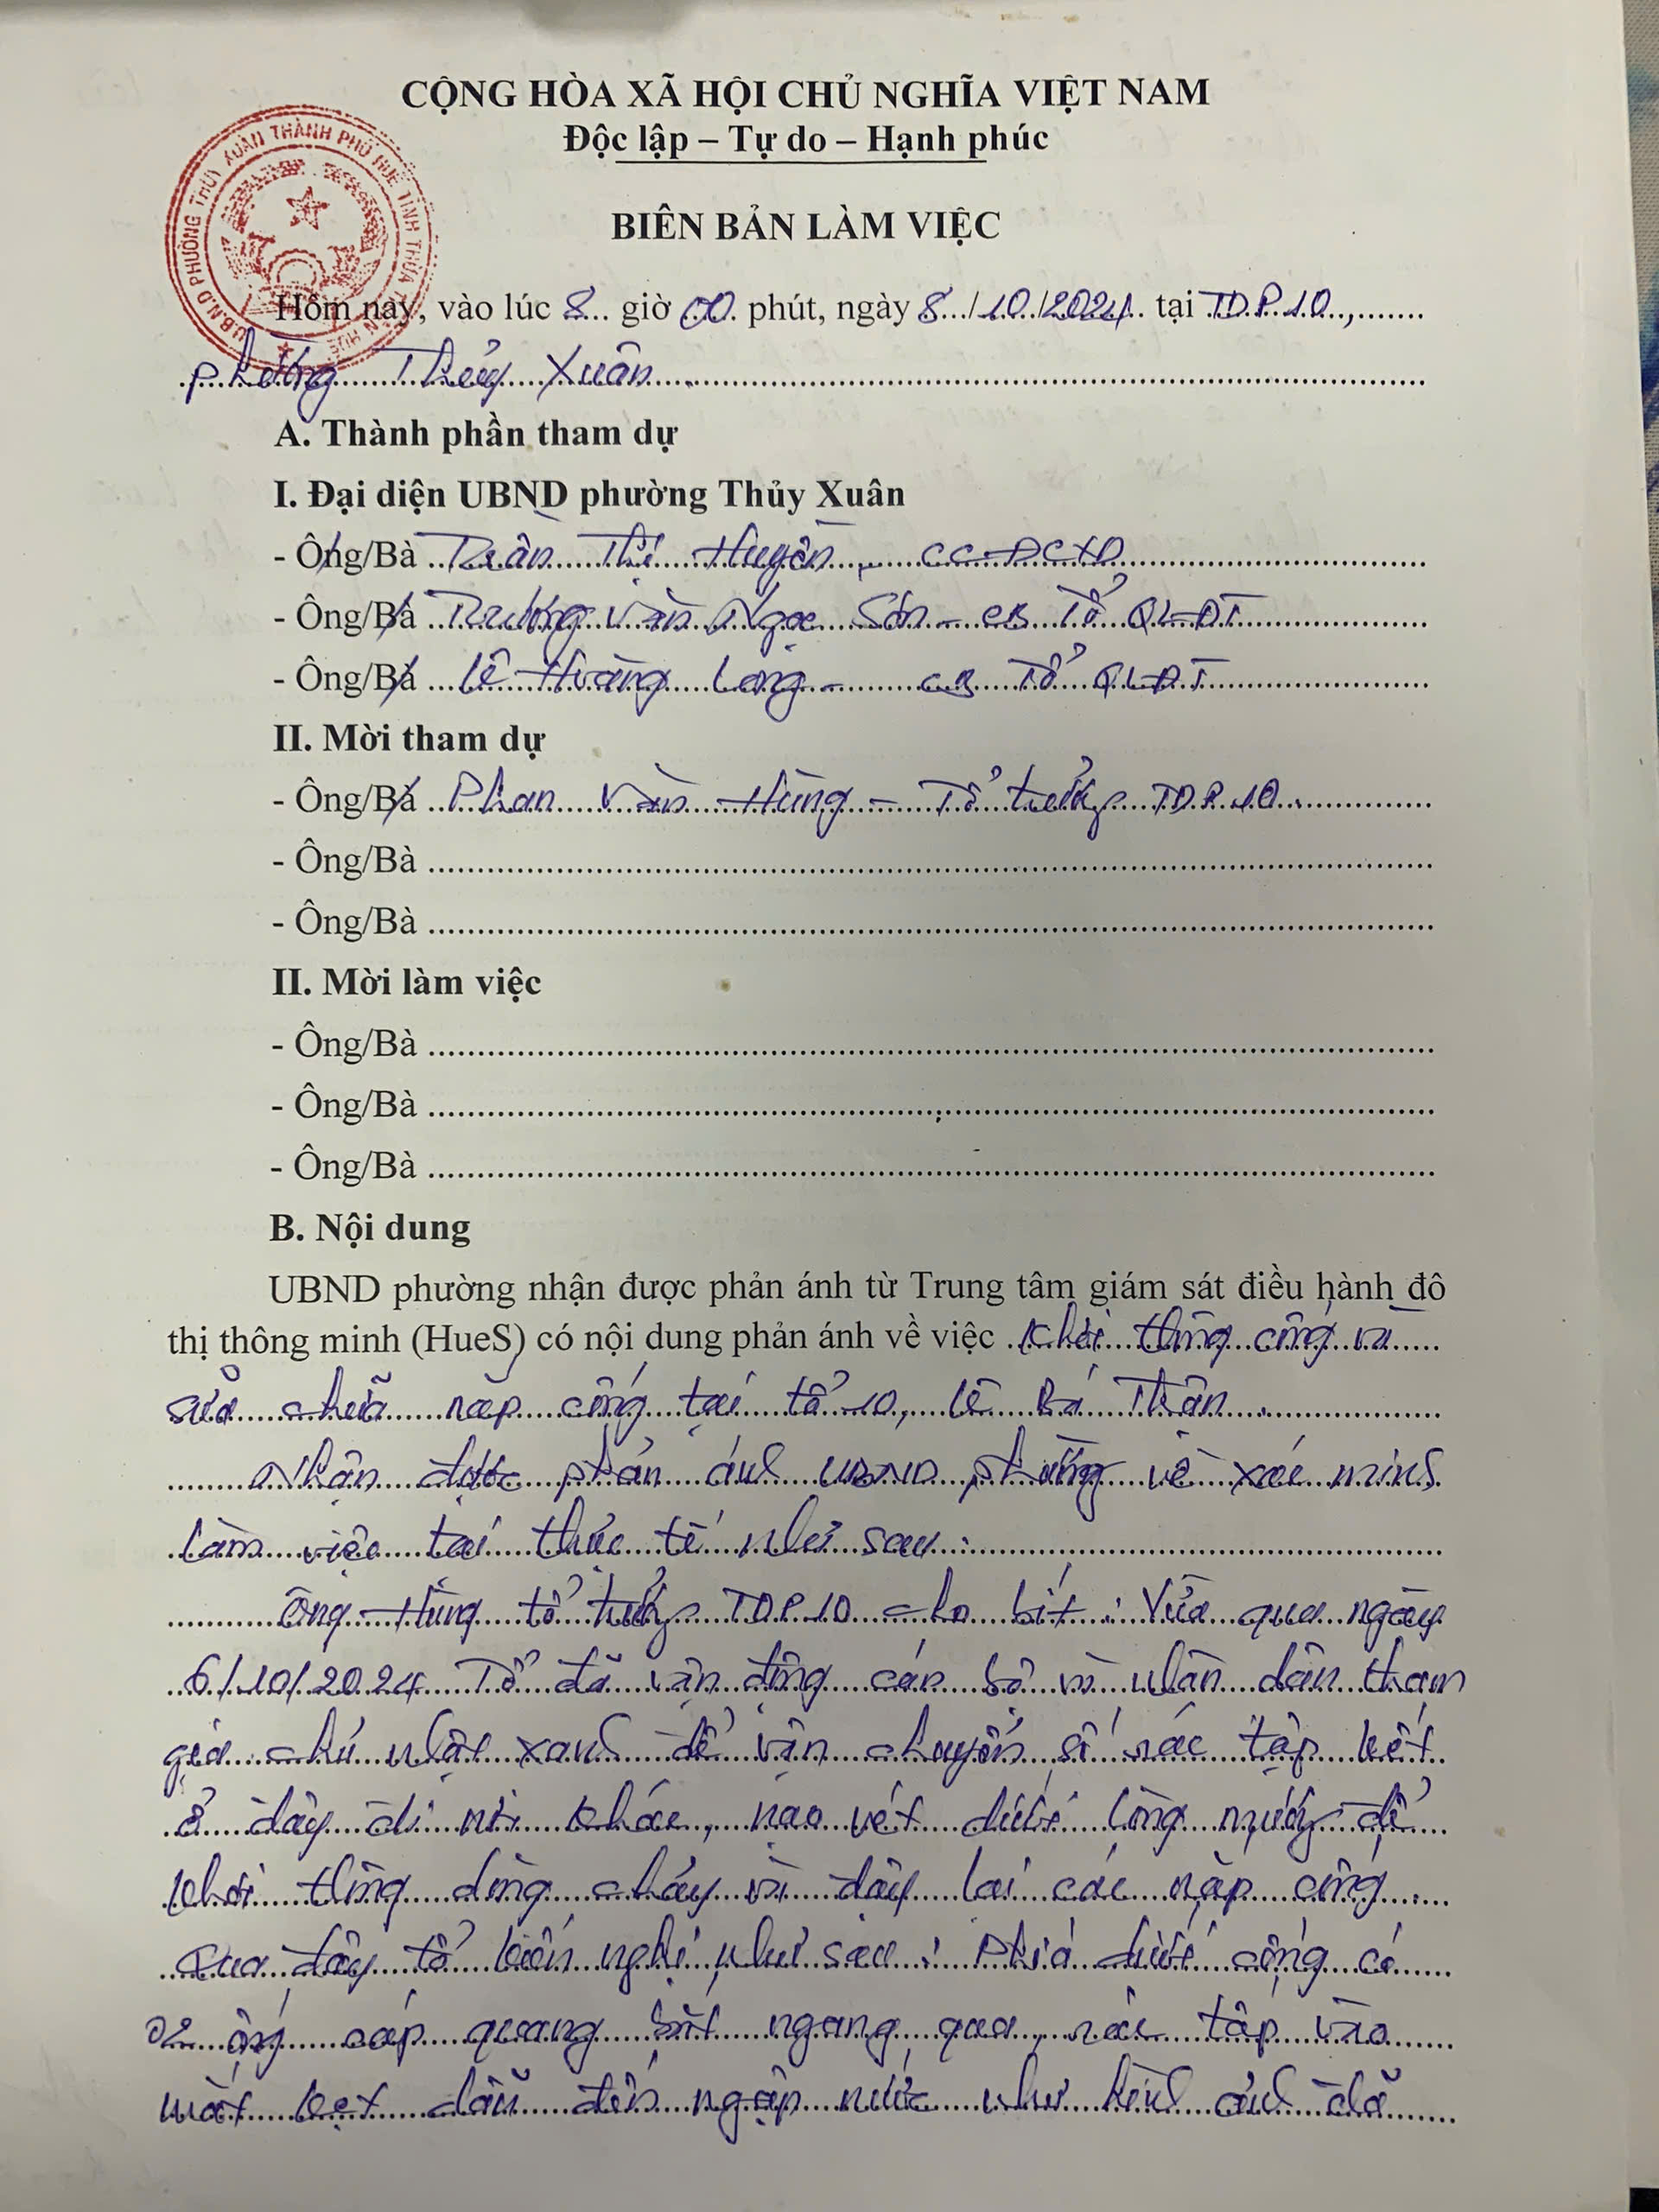 CỘNG HÒA XÃ HỘI CHỦ NGHĨA VIỆT NAM
Độc lập – Tự do – Hạnh phúc
U.B.N.D PHƯỜNG THỦY XUÂN THÀNH PHỐ HUẾ TỈNH THỪA THIÊN HUẾ
BIÊN BẢN LÀM VIỆC
Hôm nay, vào lúc 8 giờ 00 phút, ngày 8/10/2024 tại TDP 10,
phường Thủy Xuân.
A. Thành phần tham dự
I. Đại diện UBND phường Thủy Xuân
- Ông/Bà Trần Thị Huyền, CC-ĐCXD
- Ông/Bà Trương Văn Ngọc Sơn - CB Tổ QLĐT
- Ông/Bà Lê Hoàng Long - CB Tổ QLĐT
II. Mời tham dự
- Ông/Bà Phan Văn Hùng - Tổ trưởng TDP 10.
- Ông/Bà
- Ông/Bà
II. Mời làm việc
- Ông/Bà
- Ông/Bà
- Ông/Bà
B. Nội dung
UBND phường nhận được phản ánh từ Trung tâm giám sát điều hành đô
thị thông minh (HueS) có nội dung phản ánh về việc Khơi thông cống và
sửa chữa nắp cống tại tổ 10, Lê Bá Thận.
Nhận được phản ánh UBND phường về xác minh
làm việc tại thực tế như sau:
Ông Hùng tổ trưởng TDP 10 cho biết: Vừa qua ngày
6/10/2024 Tổ đã vận động cán bộ và nhân dân tham
gia chủ nhật xanh để vận chuyển số rác tập kết
ở đây đi nơi khác, nạo vét dưới lòng mương để
khơi thông dòng chảy và đậy lại các nắp cống.
Qua đây tổ kiến nghị như sau: Phía dưới cống có
02 ống cáp quang bắt ngang qua, rác tấp vào
mắt kẹt dẫn đến ngập nước như hình ảnh đã